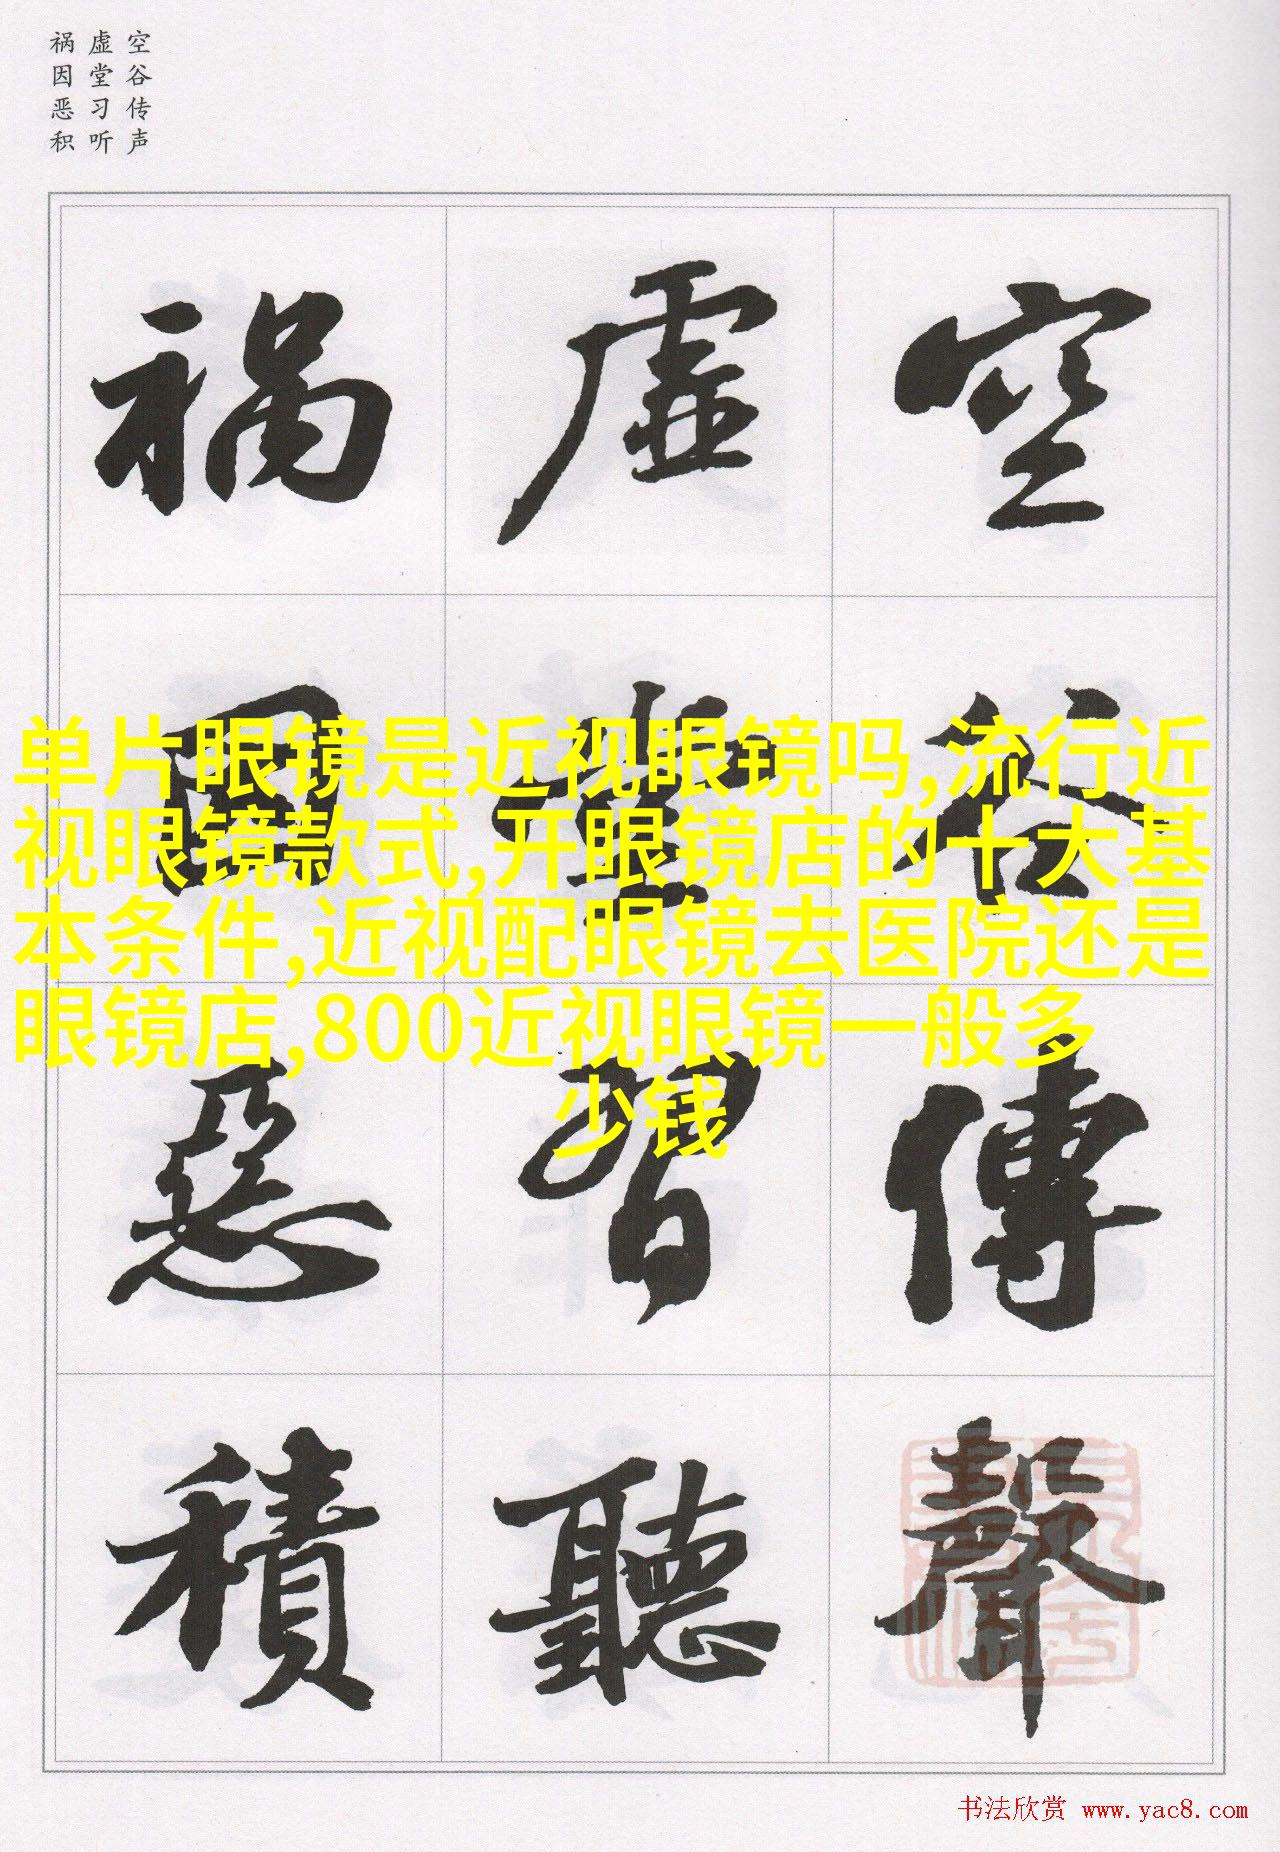 空谷传声
虚堂习听
祸因恶积
空谷傳聲
虛堂習聽
禍因惡積
单片眼镜是近视眼镜吗,流行近
视眼镜款式,开眼镜店的十大基
本条件,近视配眼镜去医院还是
眼镜店,800近视眼镜一般多
少钱
书法欣赏 www.yac8.com